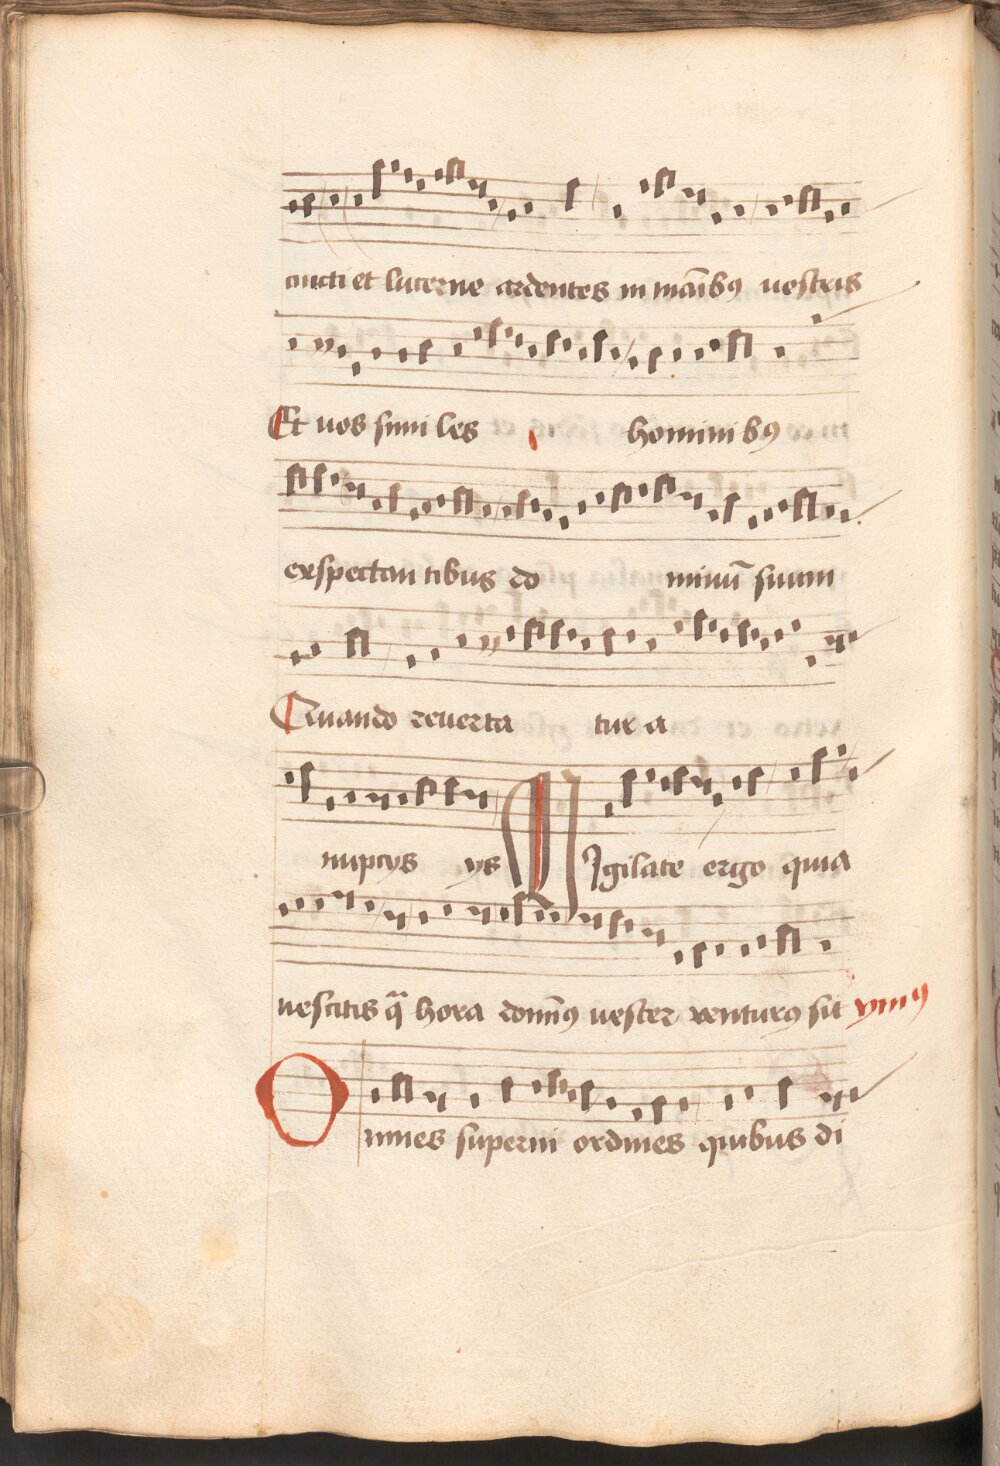 cincti et lucerne ardentes in manibꝰ vestris
Et vos simi les homini bꝰ
exspectan tibus do minū suum
Quando reuerta tur a
nupcys ys Vigilate ergo quia
nescitis qa hora domnꝰ vester venturꝰ sit ymnꝰ
Omnes superni ordines quibus di